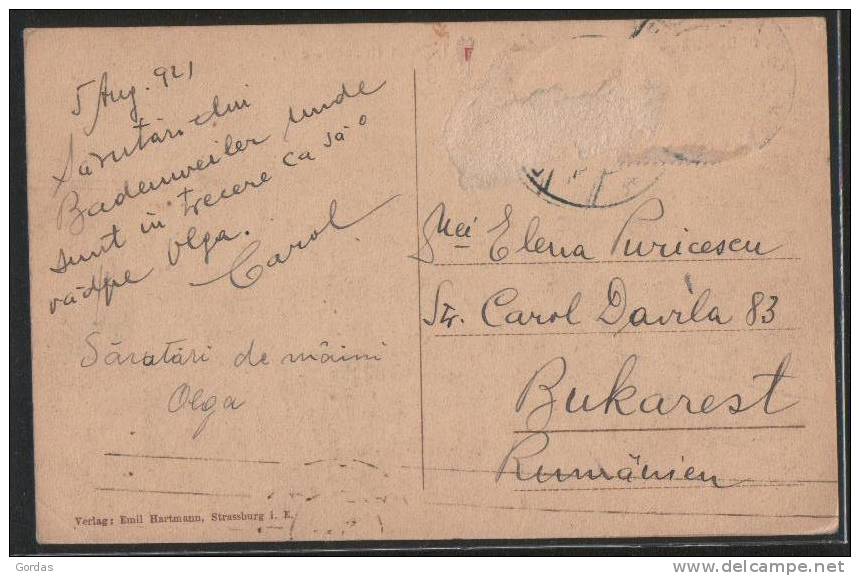 5 Aug. 921
Sărutări din
Badenweiler unde
sunt în trecere ca să o
văd pe Olga.
Carol
Sărutări de mâini
Olga
Elena Puricescu
Str. Carol Davila 83
Bukarest
Rumänien
Verlag: Emil Hartmann, Strassburg i. E.
Gordas
delcampe.net